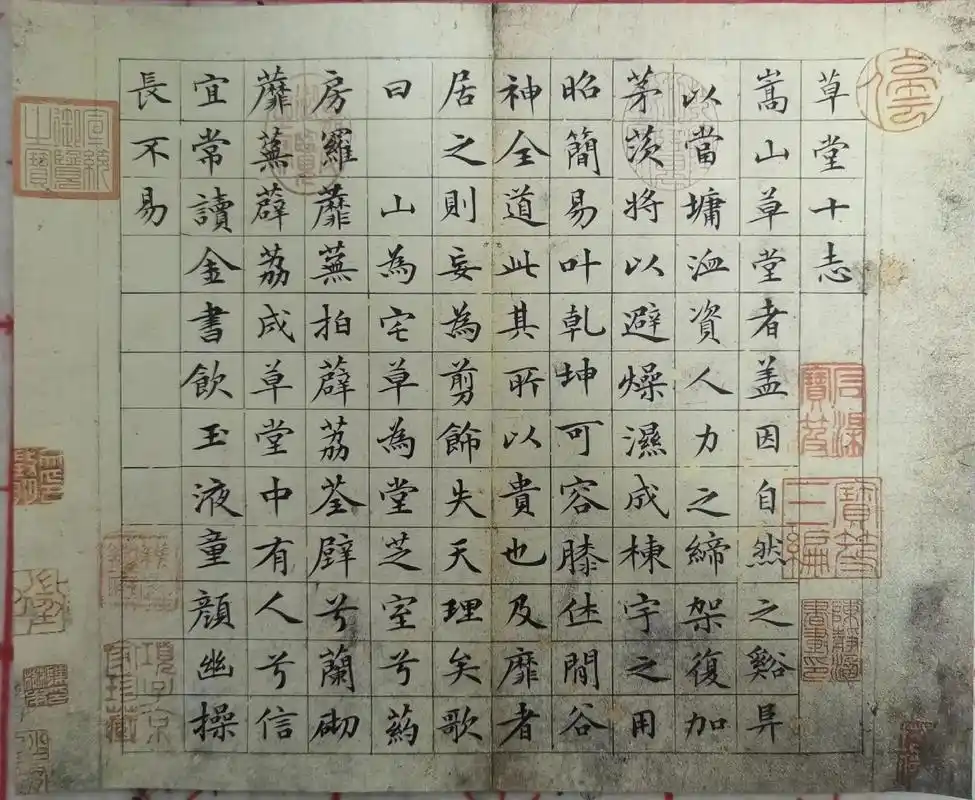 停雲
草堂十志
嵩山草堂者盖因自然之谿阜
以當墉洫資人力之締架復加
茅茨將以避燥濕成棟宇之用
昭簡易叶乹坤可容膝休閒谷
神全道此其所以貴也及靡者
居之則妄為剪飾失天理矣歌
曰 山為宅草為堂芝室兮葯
房羅蘼蕪拍薜荔荃壁兮蘭砌
蘼蕪薜荔成草堂中有人兮信
宜常讀金書飲玉液童顏幽操
長不易
石渠寶笈
寶笈三編
宣統御覽之寶
項子京家珍藏